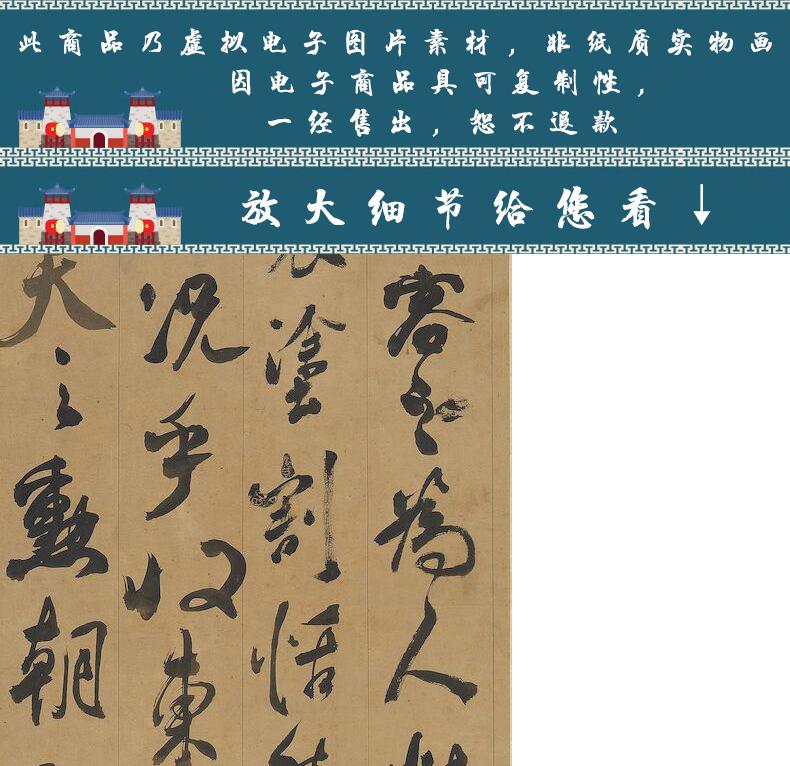 此商品乃虚拟电子图片素材，非纸质实物画
因电子商品具可复制性，
一经售出，恕不退款
放大细节给您看↓
客之為人
塗割恬
况乎收東
天之勳朝